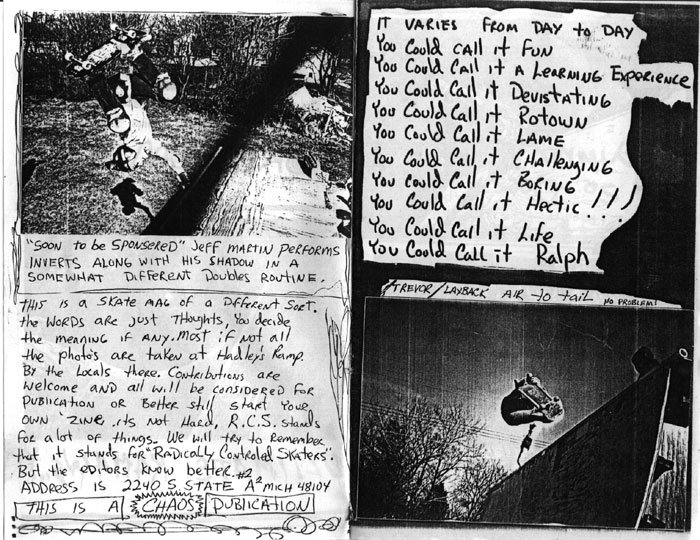 "SOON to be SPONSERED" JEFF MARTIN PERFORMS
INVERTS ALONG WITH HIS SHADOW IN A
SOMEWHAT DIFFERENT DOUBLES ROUTINE.
THIS IS A SKATE MAG OF A DIFFERENT SORT.
the WORDS ARE JUST THOUGHTS, YOU decide
the meaning if ANY. MOST if NOT all
the photo's are taken at Hadley's Ramp.
By the Locals there. Contributions are
welcome AND all will be considered FOR
PUBLICATION OR Better still START YOUR
OWN 'ZINE. its NOT HARD, R.C.S. stands
FOR a lot of things. We will try to Remember
that it stands for "Radically Controled Skaters".
But the editors know better. #2
ADDRESS IS 2240 S. STATE A² MICH 48104
THIS IS A CHAOS PUBLICATION
IT VARIES FROM DAY to DAY
You Could call it FUN
You Could Call it A Learning Experience
You Could Call it Devistating
You Could Call it Rotown
You Could Call it LAME
You Could Call it CHALLENGING
You Could Call it BORING
You Could Call it Hectic!!!
You Could Call it Life
You Could Call it Ralph
TREVOR/LAYBACK AIR to tail NO PROBLEM!